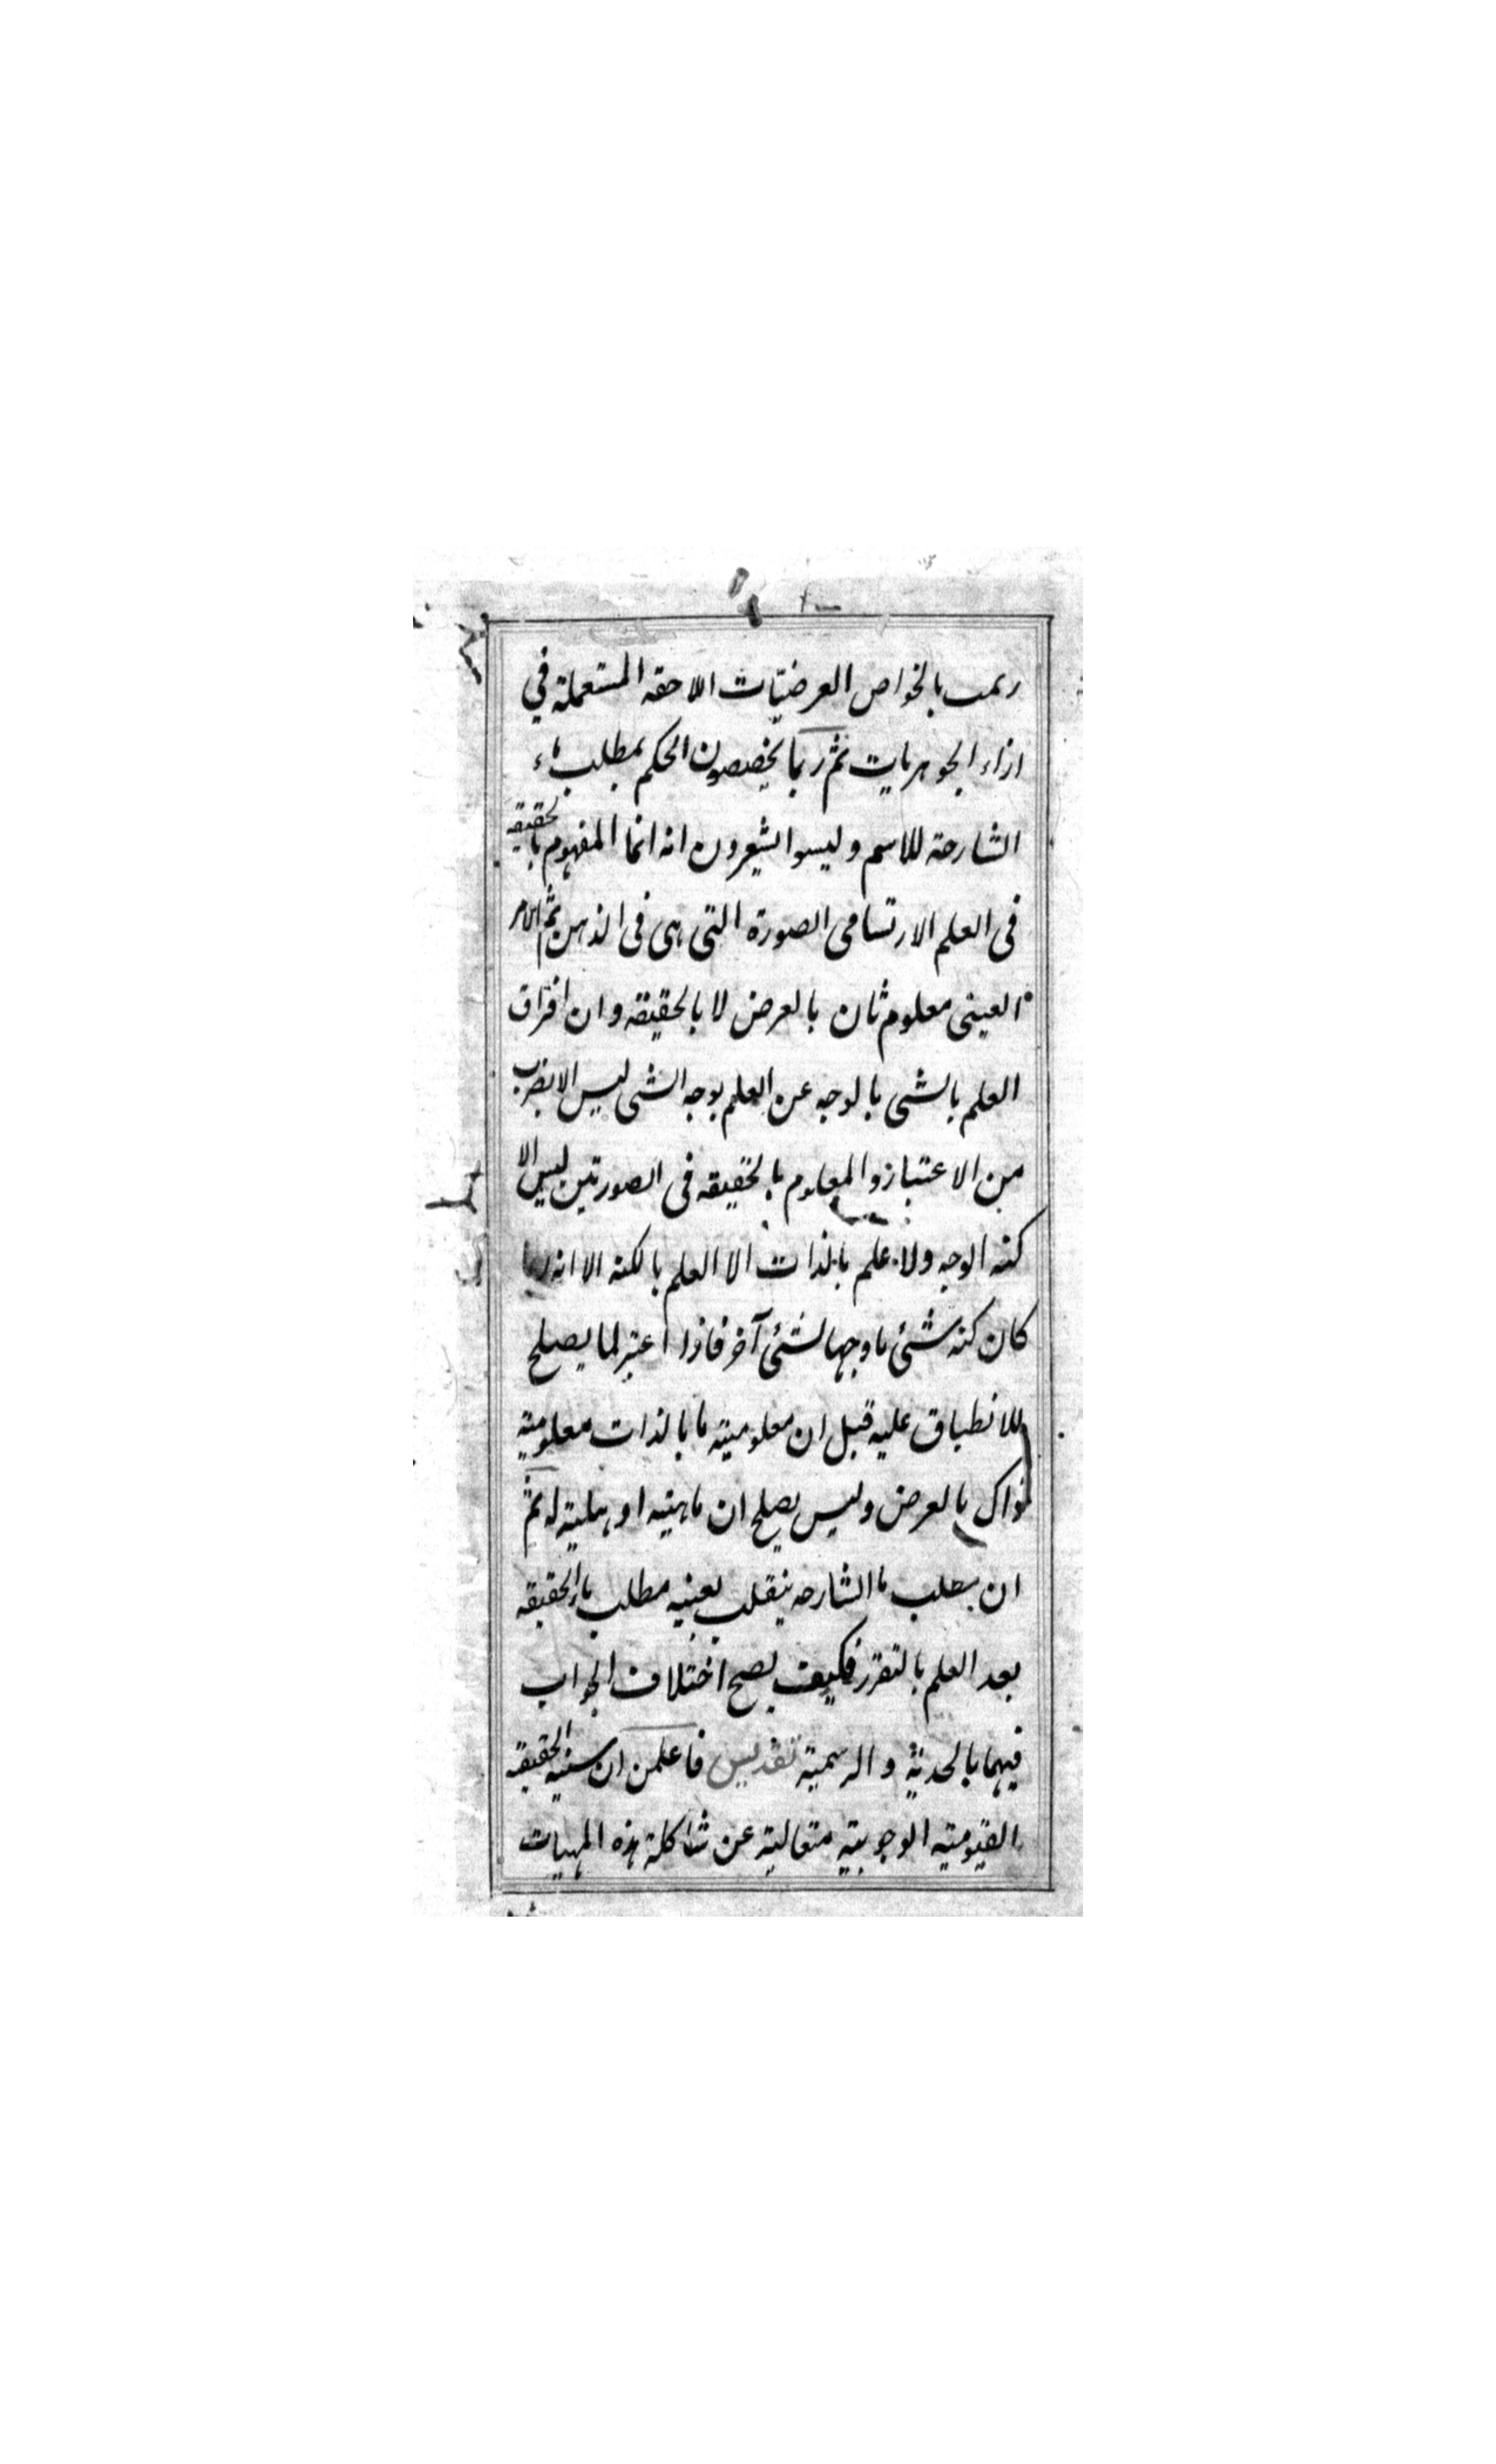 رسمت بالخواص العرضيّات اللاحقه المستعملة في
ازاء الجوهريات ثمّ ربما يخصصون الحكم بمطلب ماء
الشارحة للاسم و ليسوا يشعرون انه انما المفهوم بالحقيقه
فى العلم الارتسامى الصورة التى هى فى الذهن ثمّ الامر
العينى معلوم ثان بالعرض لا بالحقيقه و ان افتراق
العلم بالشى بالوجه عن العلم بوجه الشى ليس الا بضرب
من الاعتبار و المعلوم بالحقيقه فى الصورتين ليس الا
كنه الوجه و لا علم بالذات الا العلم بالكنه الا انه ربما
كان كنه شئ ما وجها لشئ آخر فاذا اعتبر لما يصلح
للانطباق عليه قيل ان معلومية ما بالذات معلومية
لذاك بالعرض و ليس يصلح ان ماهيته او هليته له ثمّ
ان مطلب ما الشارحه ينقلب بعينه مطلب ما الحقيقه
بعد العلم بالتقرّر فكيف يصح اختلاف الجواب
فيهما بالحدية و الرسمية تقديس فاعلمن ان سنه الحقيقه
القيومية الوجوبية متعالية عن شاكلة هذه المهيات